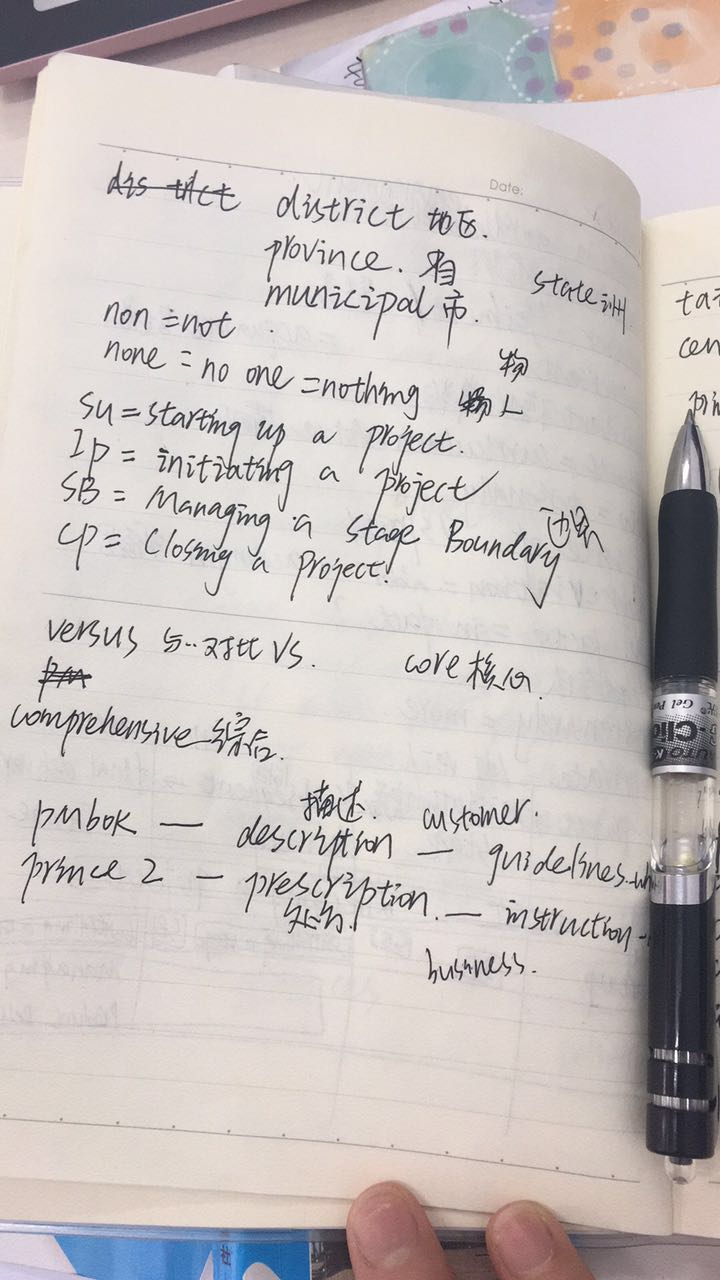 Date:
district 地区.
province. 省
state 州
municipal 市.
non = not
none = no one = nothing 物 人
SU = starting up a project.
Ip = initiating a project
SB = Managing a stage Boundary 边界
CP = Closing a project.
versus 与..对比 VS. core 核心.
comprehensive 综合.
描述. customer.
pmbok — description — guidelines
prince 2 — prescription. — instruction
处方.
business.
Gel Pen